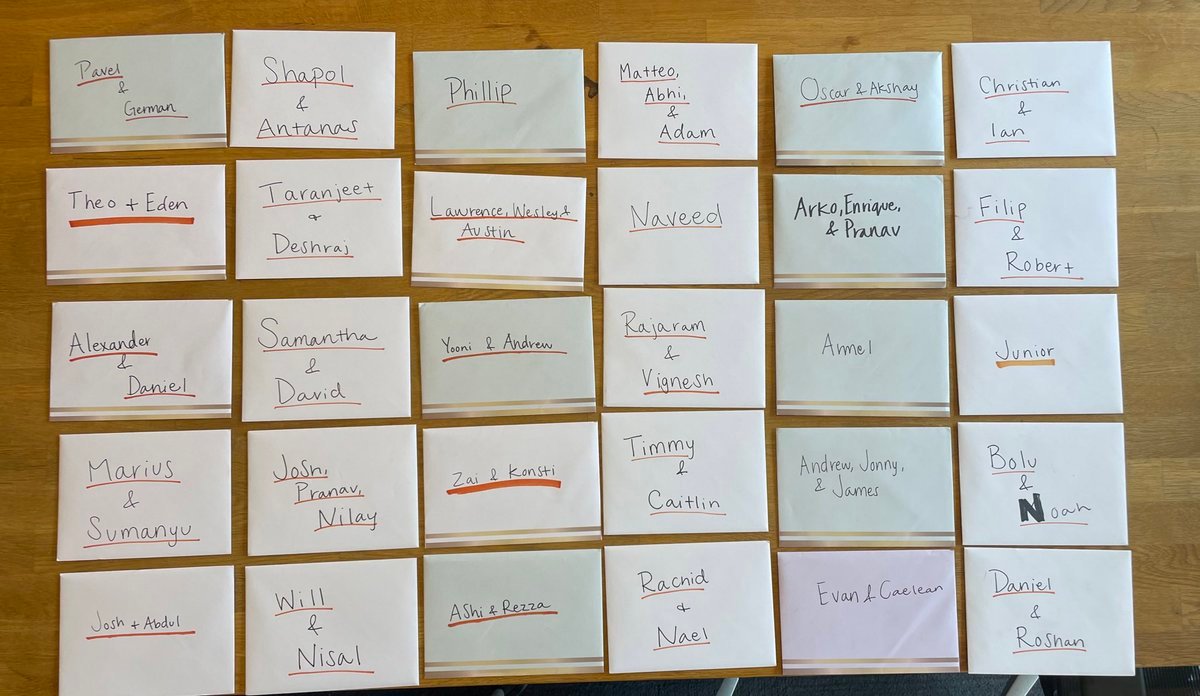 Pavel
&
German
Shapol
&
Antanas
Phillip
Matteo,
Abhi,
&
Adam
Oscar & Akshay
Christian
&
Ian
Theo + Eden
Taranjeet
&
Deshraj
Lawrence, Wesley &
Austin
Naveed
Arko, Enrique,
& Pranav
Filip
&
Robert
Alexander
&
Daniel
Samantha
&
David
Yooni & Andrew
Rajaram
&
Vignesh
Armel
Junior
Marius
&
Sumanyu
Josh,
Pranav,
Nilay
Zai & Konsti
Timmy
&
Caitlin
Andrew, Jonny,
& James
Bolu
&
Noah
Josh + Abdul
Will
&
Nisal
Ashi & Rezza
Rachid
&
Nael
Evan & Caelean
Daniel
&
Roshan